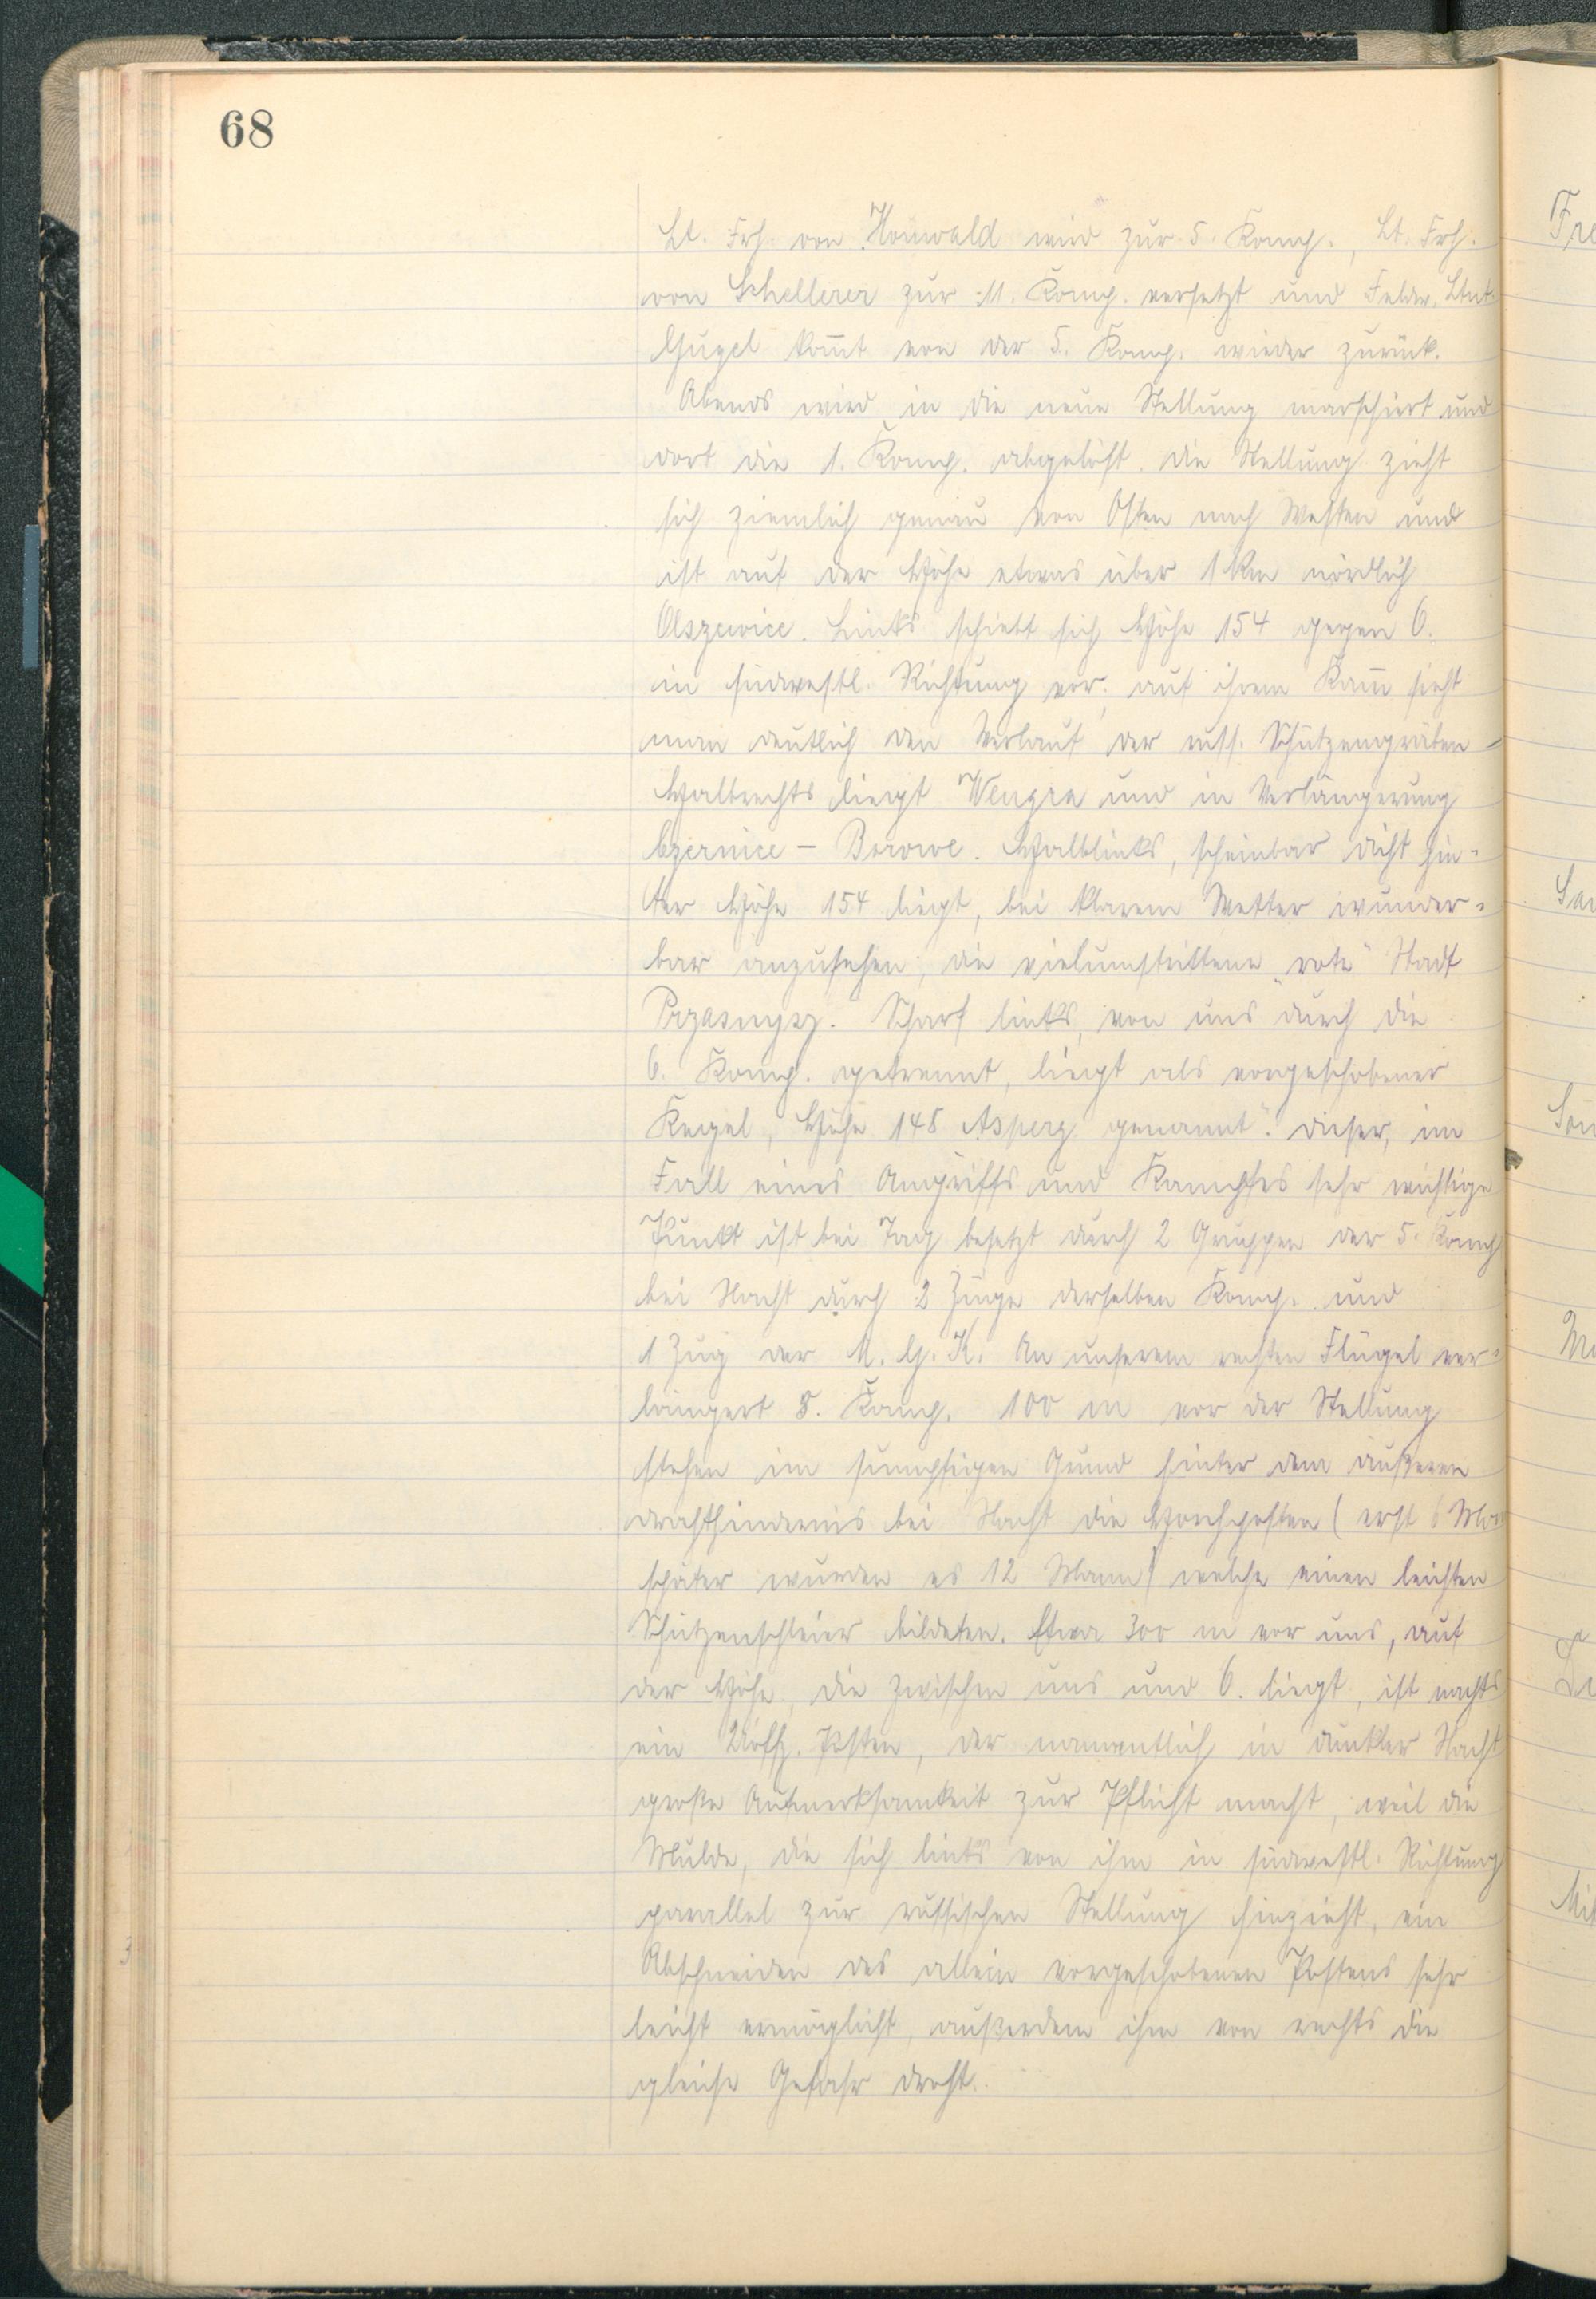 68
Lt. Frh. von Houwald wird zur 5. Komp., Lt. Frh.
von Schellerer zur 11. Komp. versetzt und Feldw. Ltnt.
Gugel kom̅t von der 5. Komp. wieder zurück.
Abends wird in die neue Stellung marschiert und
dort die 1. Komp. abgelöst. Die Stellung zieht
sich ziemlich genau von Osten nach Westen und
ist auf der Höhe etwas über 1 km nördlich
Olszewice. Links schiebt sich Höhe 154 gegen O.
in südwestl. Richtung vor; auf ihrem Kam̅ sieht
man deutlich den Verlauf der russ. Schützengräben
Halbrechts liegt Wengra und in Verlängerung
Czernice – Borowe. Halblinks, scheinbar dicht hin-
ter Höhe 154 liegt, bei klarem Wetter wunder-
bar anzusehen, die vielumstrittene „rote“ Stadt
Przasnysz. Scharf links, von uns durch die
6. Komp. getrennt, liegt als vorgeschobener
Kegel, Höhe 148 „Asperg genannt“. Dieser, im
Fall eines Angriffs und Kampfes sehr wichtige
Punkt ist bei Tag besetzt durch 2 Gruppen der 5. Komp
bei Nacht durch 2 Züge derselben Komp. und
1 Zug der M. G. K. An unserem rechten Flügel ver-
längert 8. Komp. 100 m vor der Stellung
stehen im sumpfigen Grund hinter dem äußeren
Drahthindernis bei Nacht die Horchposten (erst 6 Ma
später wurden es 12 Mann) welche einen leichten
Schützenschleier bildeten. Etwa 300 m vor uns, auf
der Höhe, die zwischen uns und O. liegt, ist nachts
ein Uoffz. Posten, der namentlich in dunkler Nacht
große Aufmerksamkeit zur Pflicht macht, weil die
Mulde, die sich links von ihm in südwestl. Richtung
parallel zur russischen Stellung hinzieht, ein
Abschneiden des allein vorgeschobenen Postens sehr
leicht ermöglicht, außerdem ihm von rechts die
gleiche Gefahr droht.